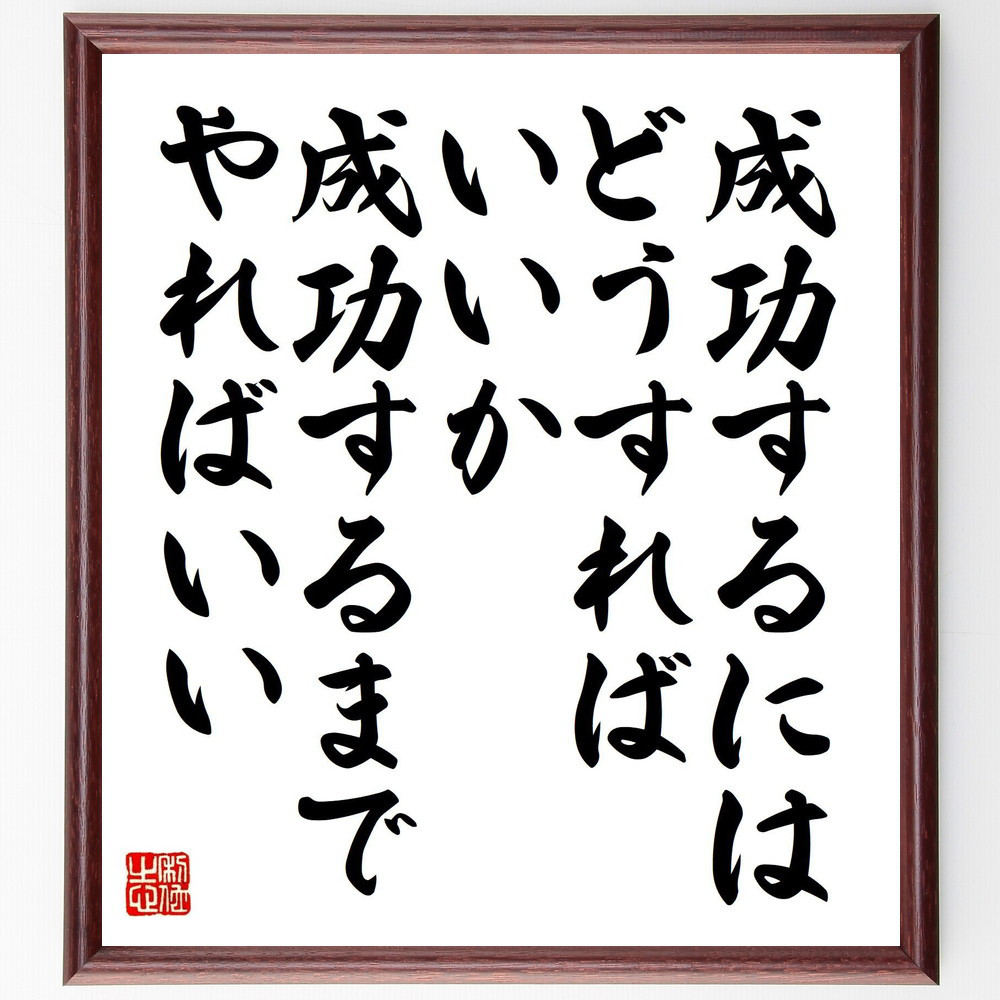 成功するには
どうすれば
いいか
成功するまで
やればいい